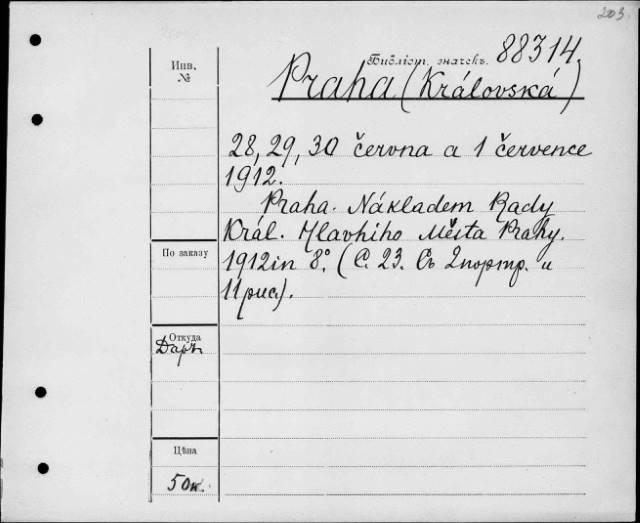 203.
Инв.
№
Библіот. значекъ. 88314.
Praha (Královská)
28, 29, 30 června a 1 července
1912.
Praha. Nákladem Rady
Král. Hlavního Města Prahy.
По заказу
1912 in 8°. (С. 23. Съ 2 портр. и
11 рис.).
Откуда
Даръ
Цѣна
50 к.